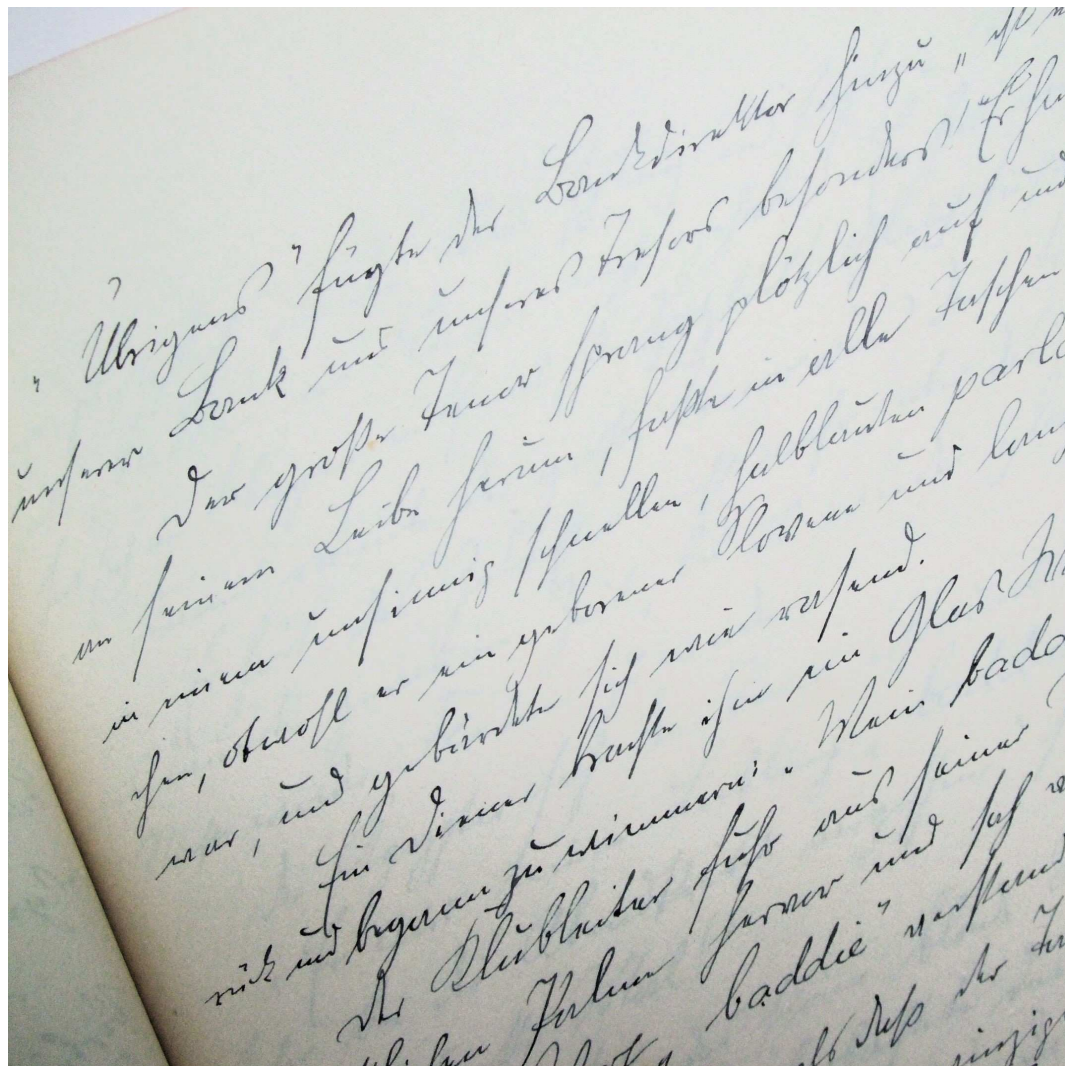 „Übrigens" fügte der Bankdirektor hinzu „ist
unserer Bank und unseres Tresors besonders" Er
Der große Tenor sprang plötzlich auf und
an seinem Leibe herum, faßte in alle Taschen
in einem unsinnig schnellen, halblauten parla
chen, obwohl er ein geborener Slowene und lang
war, und gebärdete sich wie rasend.
Ein Diener brachte ihm ein Glas
rück und begann zu wimmern: „Mein badd
Der Klubleiter fuhr aus seiner
hervor und sah
baddie" verstand
als daß der
einzig